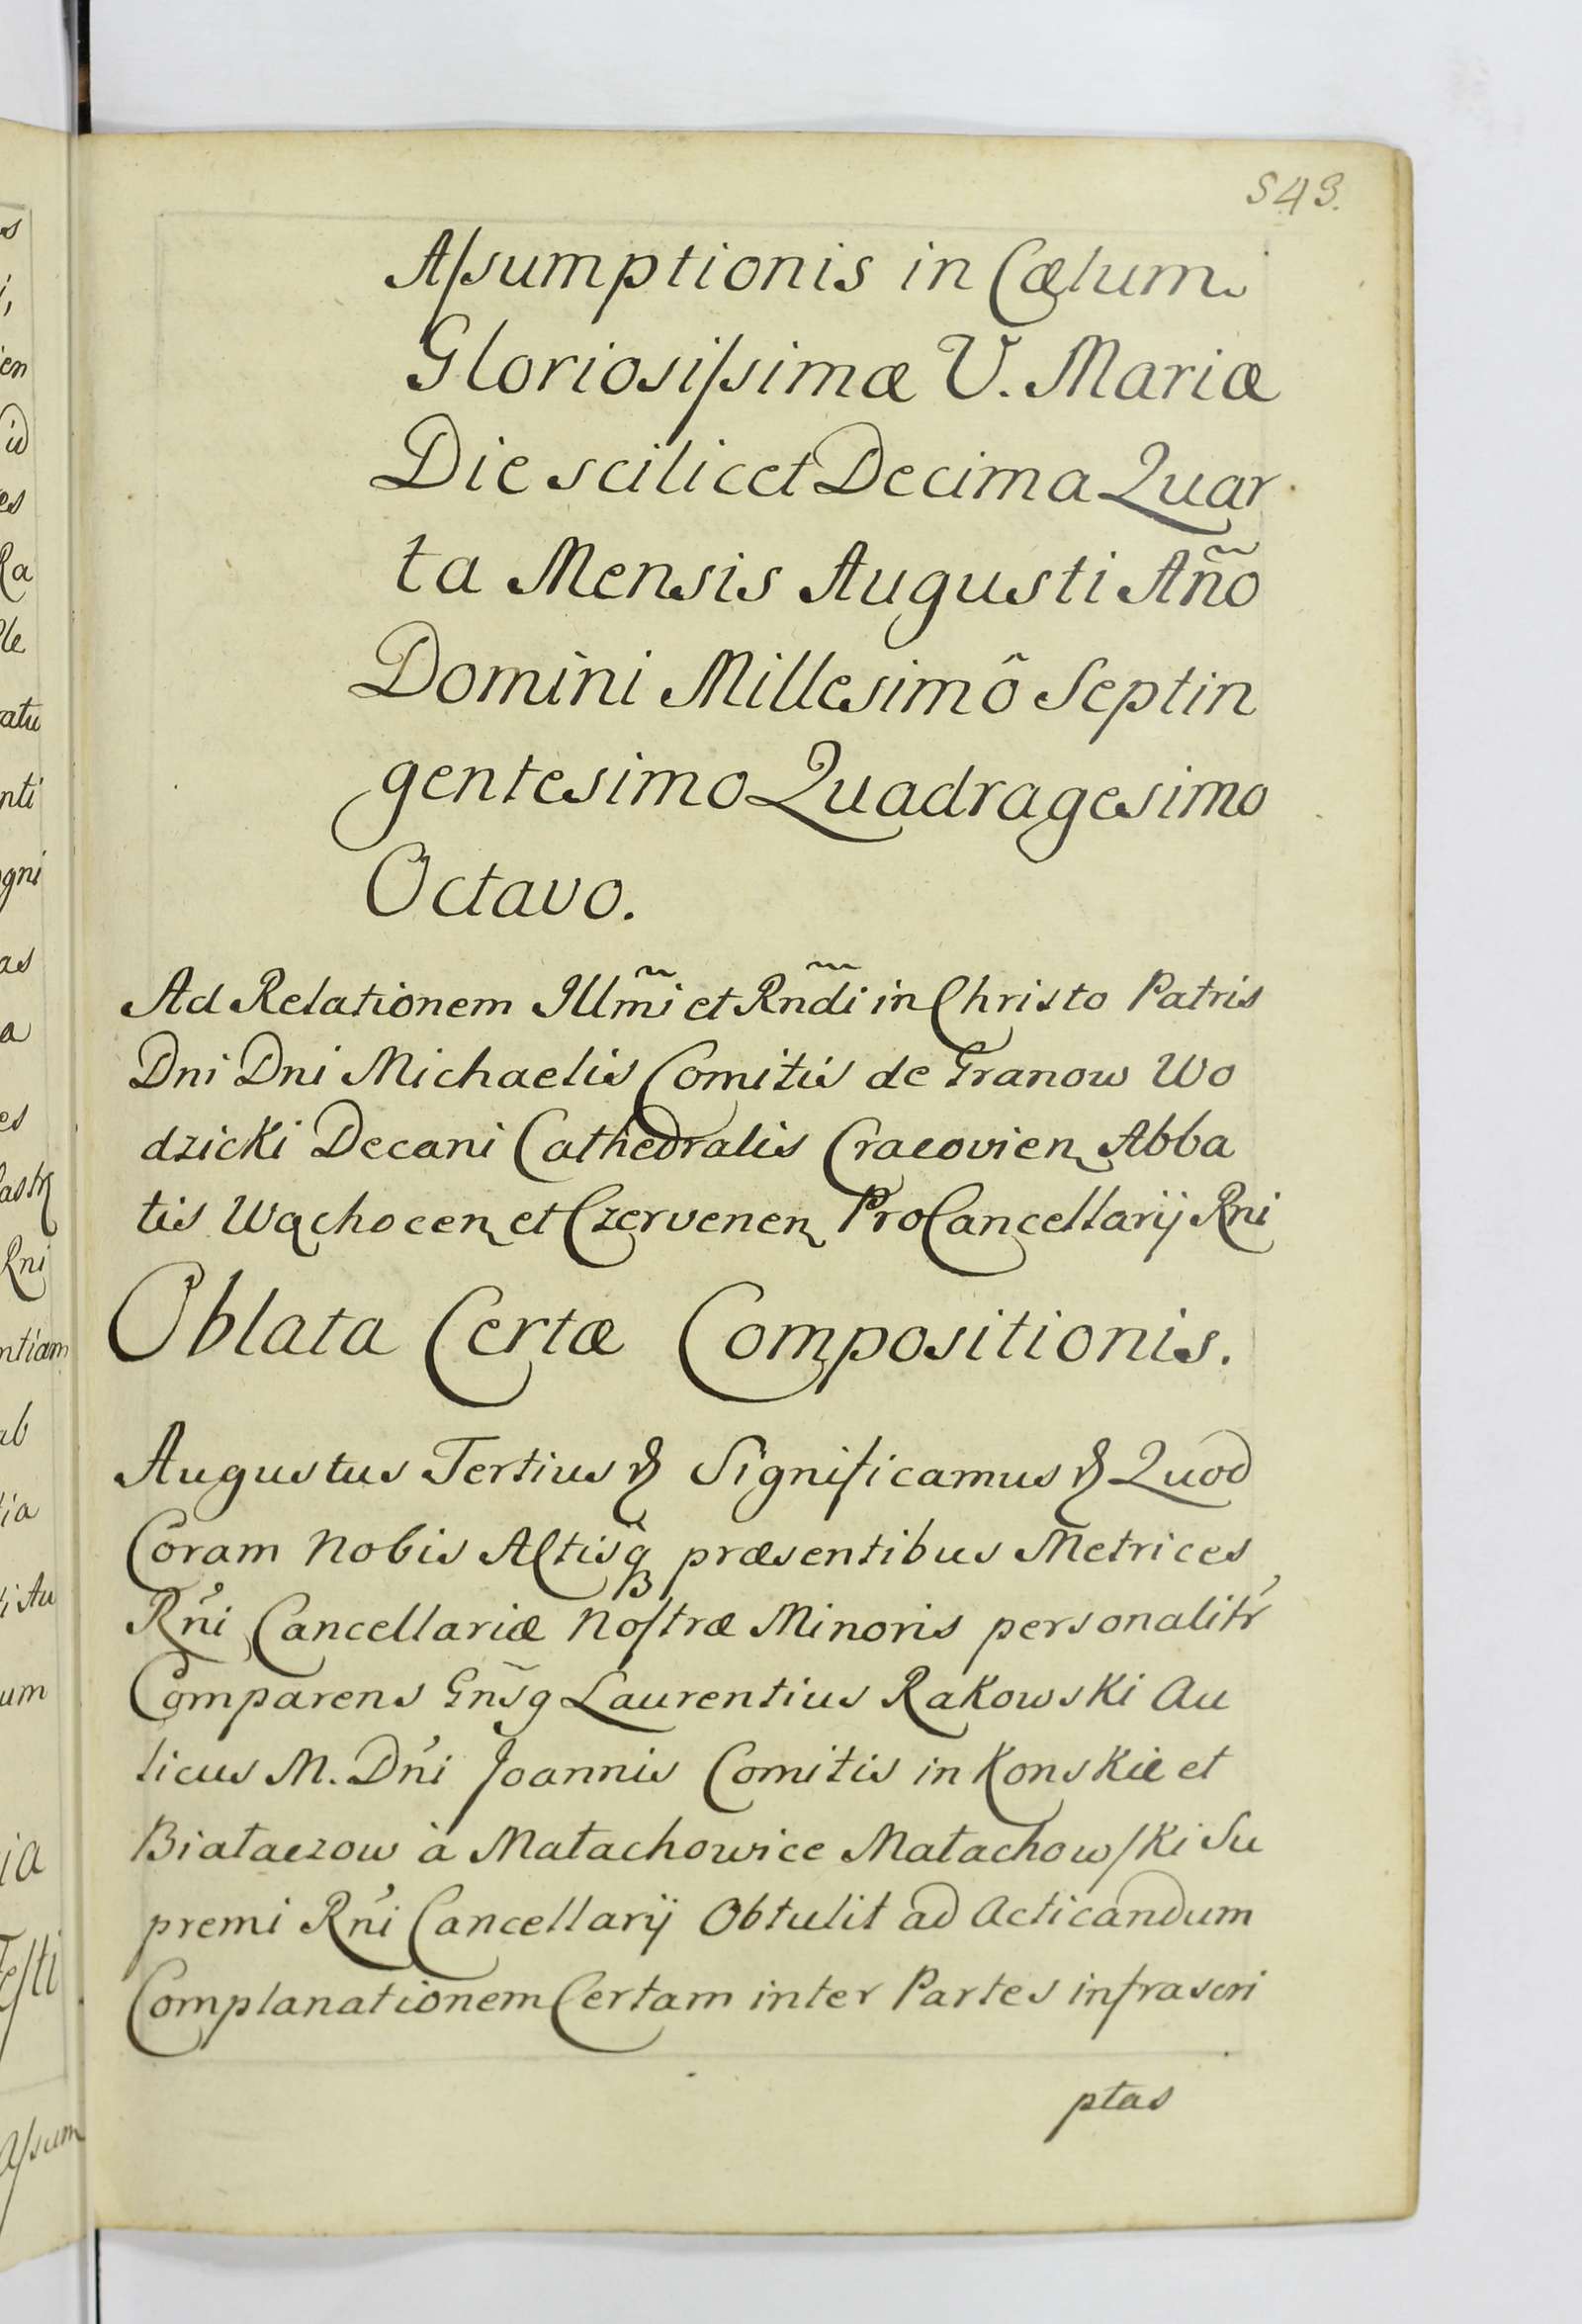 543.
Aſsumptionis in Cœlum
Gloriosiſsimæ V. Mariæ
Die scilicet Decima Quar
ta Mensis Augusti Año
Domini Millesimô Septin
gentesimo Quadragesimo
Octavo.
Ad Relationem Illm̃i et Rñdi in Christo Patris
Dni Dni Michaelis Comitis de Granow Wo
dzicki Decani Cathedralis Cracovien Abba
tis Wąchocen et Czervenen ProCancellarij Rni
Oblata Certæ Compositionis.
Augustus Tertius &c Significamus &c Quod
Coram Nobis Actisq præsentibus Metrices
Rni Cancellariæ Noſtræ Minoris personalitr
Comparens Gñsg Laurentius Rakowski Au
licus M. Dni Joannis Comitis in Konskie et
Białaczow à Małachowice Małachowſki Su
premi Rni Cancellarij Obtulit ad Acticandum
Complanationem Certam inter Partes infrascri
ptas